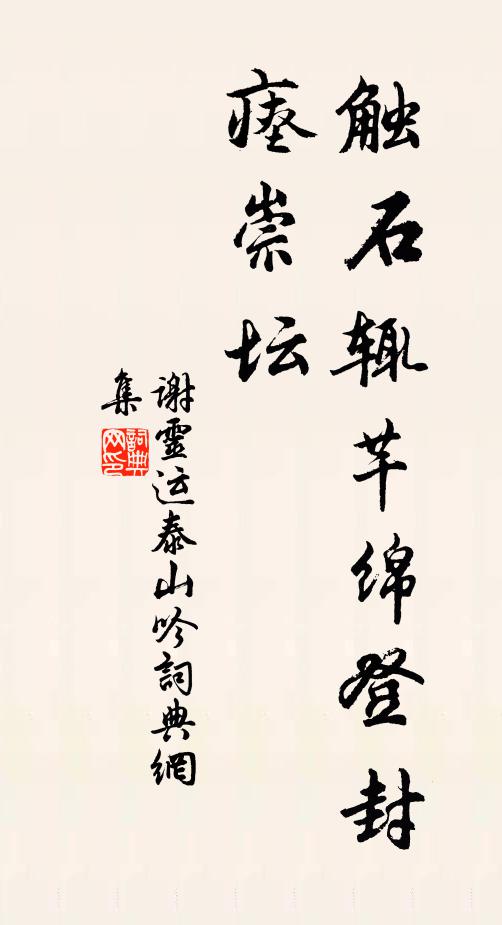 触石辄芊绵登封
瘗崇坛
谢灵运泰山吟詞典網
集
詞典
网印